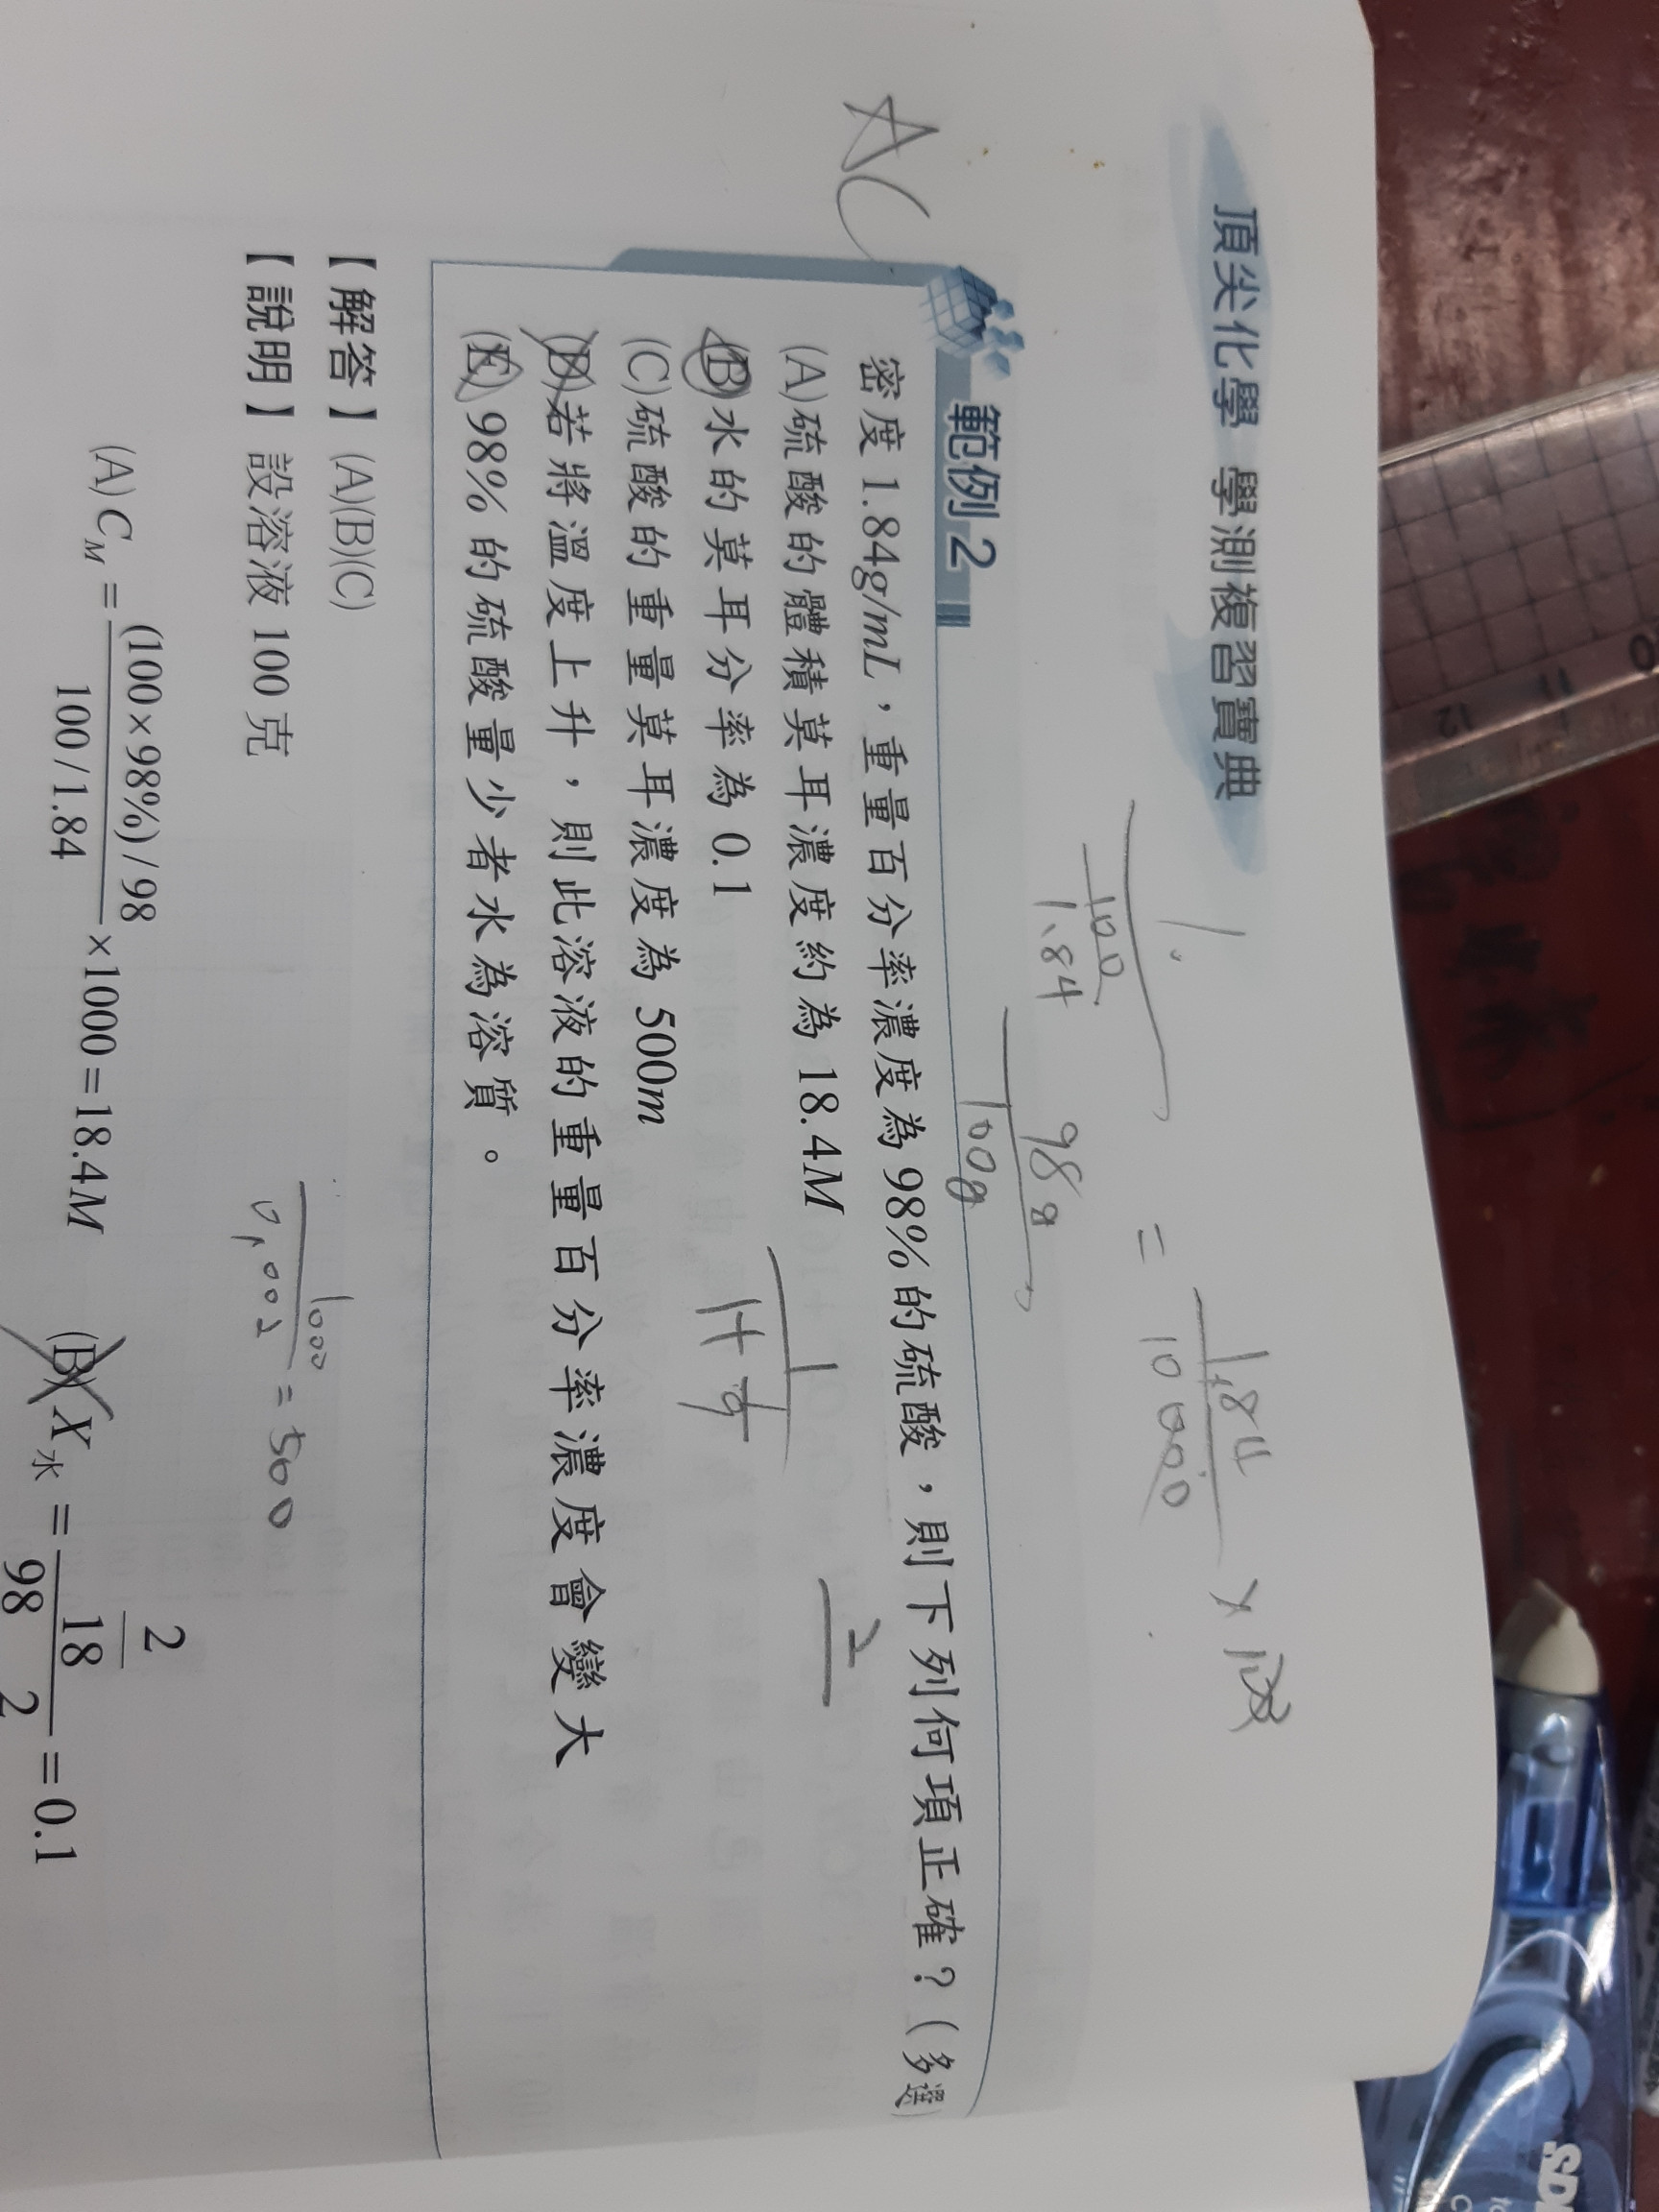 頂尖化學 學測複習寶典
1.
100
1.84
=
1.84
10000
98g
100g
AC
範例 2
密度 1.84g/mL，重量百分率濃度為 98% 的硫酸，則下列何項正確？（多選）
(A)硫酸的體積莫耳濃度約為 18.4M
2
(B)水的莫耳分率為 0.1
1
(C)硫酸的重量莫耳濃度為 500m
(D)若將溫度上升，則此溶液的重量百分率濃度會變大
(E) 98% 的硫酸量少者水為溶質。
【解答】(A)(B)(C)
1000
0.002
= 500
【說明】設溶液 100 克
(A) C_M = (100×98%)/98
100/1.84
×1000=18.4M
(B) X水 =
2
18
98
2
=0.1